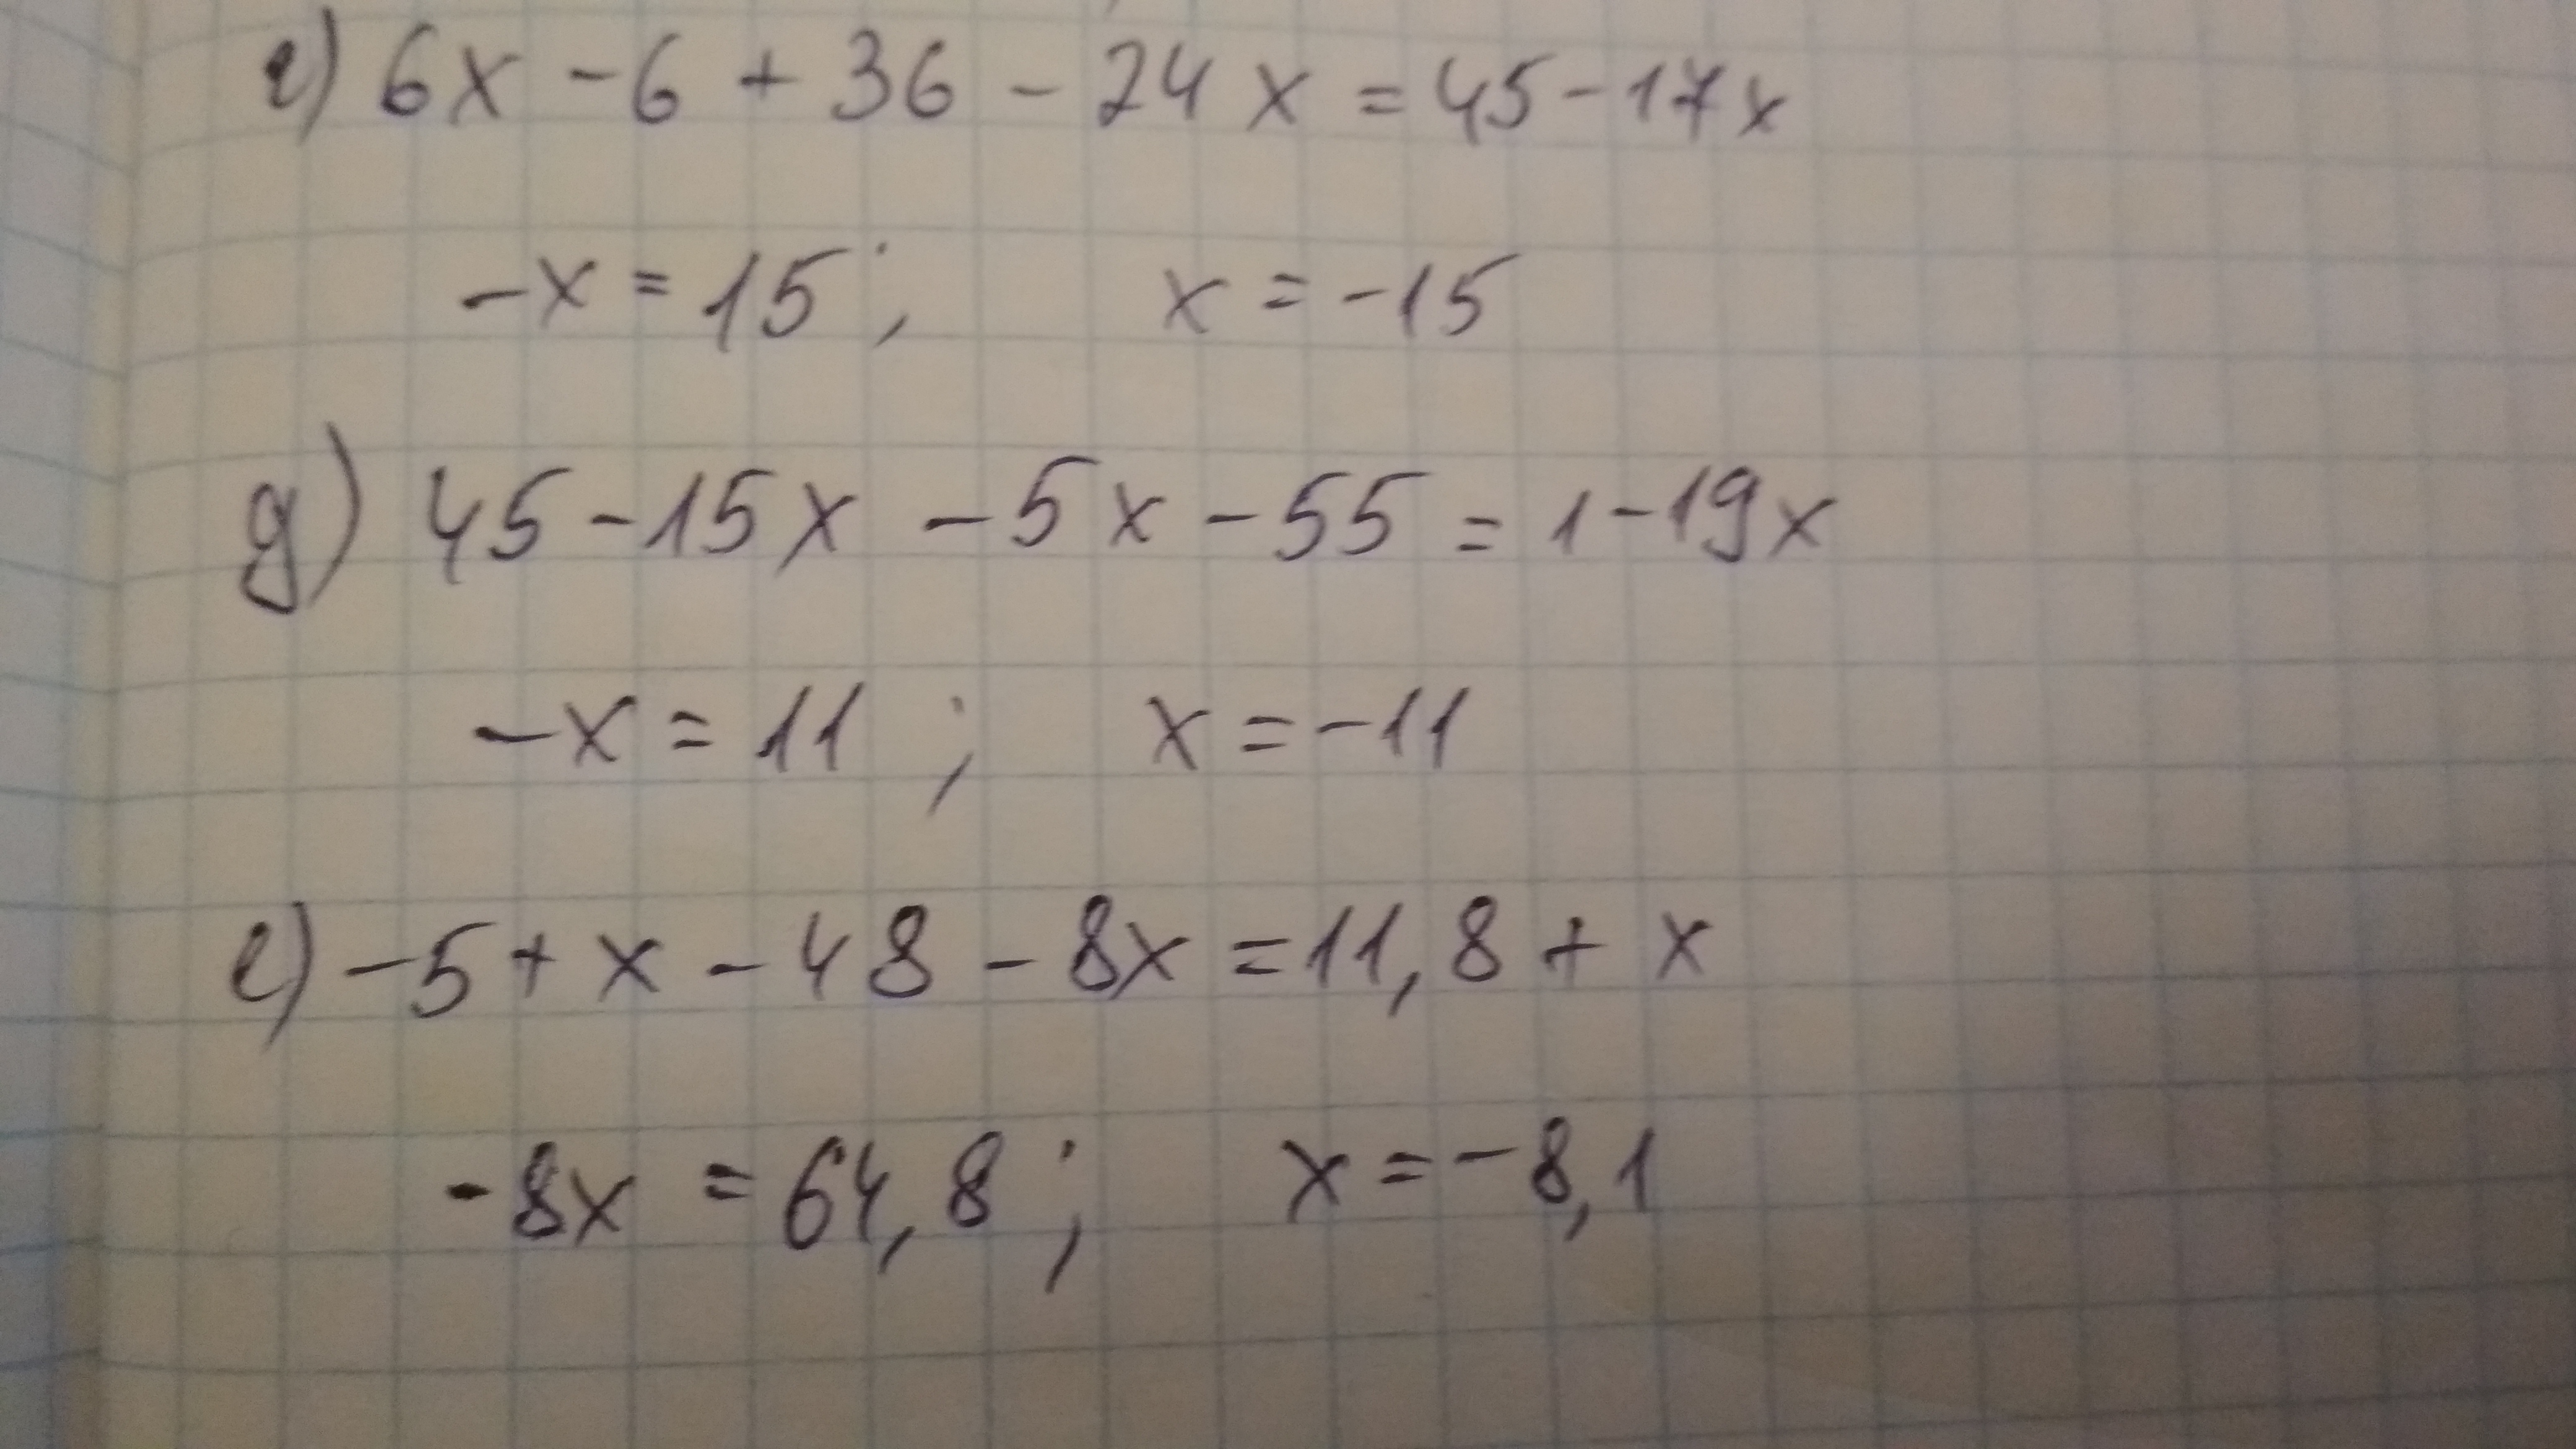 г) 6x - 6 + 36 - 24x = 45 - 17x
-x = 15; x = -15
д) 45 - 15x - 5x - 55 = 1 - 19x
-x = 11; x = -11
е) -5 + x - 48 - 8x = 11,8 + x
-8x = 64,8; x = -8,1